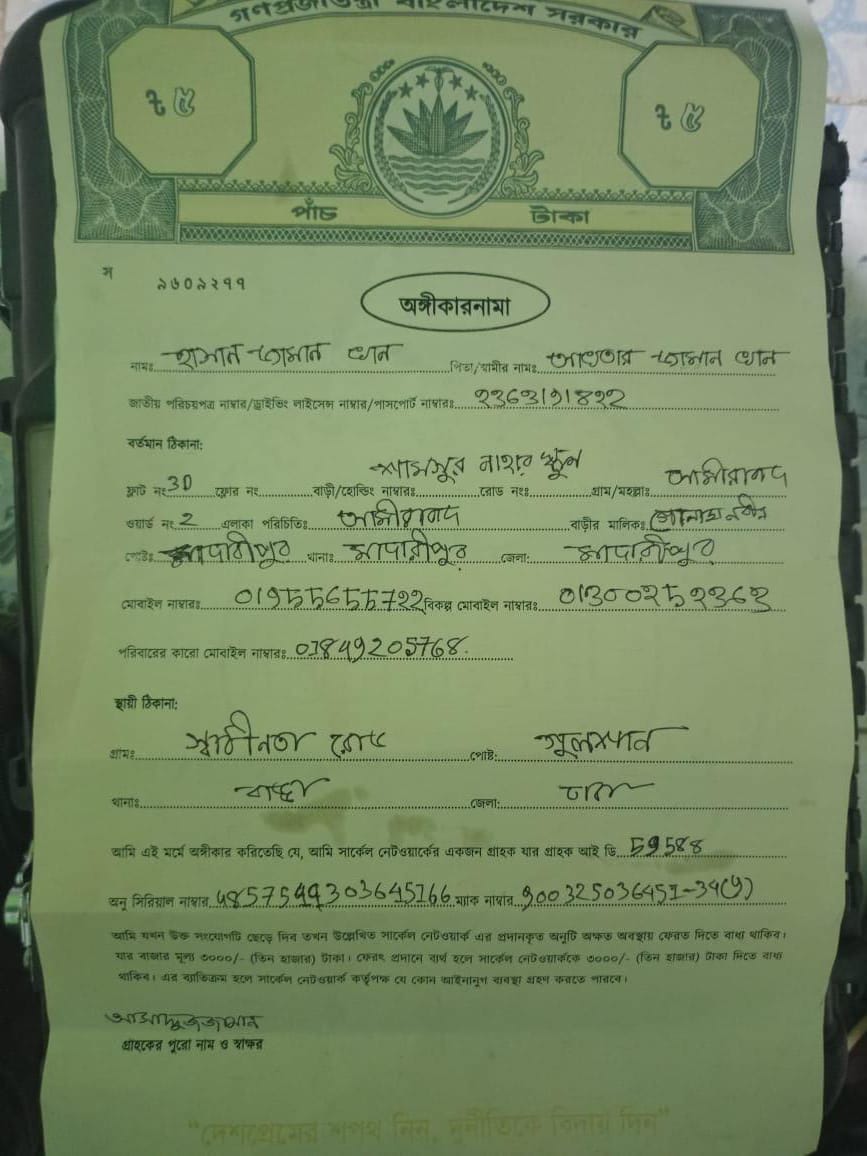 গণপ্রজাতন্ত্রী বাংলাদেশ সরকার
৳ ৫ ৳ ৫
পাঁচ টাকা
স ৯৬০৯২৭৭
অঙ্গীকারনামা
নামঃ হাসান জামান খান পিতা/স্বামীর নামঃ আখতার জামান খান
জাতীয় পরিচয়পত্র নাম্বার/ড্রাইভিং লাইসেন্স নাম্বার/পাসপোর্ট নাম্বারঃ
বর্তমান ঠিকানা:
শামসুর নাহার স্কুল
ফ্লাট নং 3D ফ্লোর নং বাড়ী/হোল্ডিং নাম্বারঃ রোড নংঃ গ্রাম/মহল্লাঃ আমীরাবাদ
ওয়ার্ড নং 2 এলাকা পরিচিতিঃ আমীরাবাদ বাড়ীর মালিকঃ
পোষ্টঃ মাদারীপুর থানাঃ মাদারীপুর জেলা: মাদারীপুর
মোবাইল নাম্বারঃ 01955655722 বিকল্প মোবাইল নাম্বারঃ
পরিবারের কারো মোবাইল নাম্বারঃ 01849205768.
স্থায়ী ঠিকানা:
গ্রামঃ স্বাধীনতা রোড পোষ্ট: গুলশান
থানাঃ বাড্ডা জেলা: ঢাকা
আমি এই মর্মে অঙ্গীকার করিতেছি যে, আমি সার্কেল নেটওয়ার্কের একজন গ্রাহক যার গ্রাহক আই ডি 59588
অনু সিরিয়াল নাম্বার ম্যাক নাম্বার
আমি যখন উক্ত সংযোগটি ছেড়ে দিব তখন উল্লেখিত সার্কেল নেটওয়ার্ক এর প্রদানকৃত অনুটি অক্ষত অবস্থায় ফেরত দিতে বাধ্য থাকিব।
যার বাজার মূল্য ৩০০০/- (তিন হাজার) টাকা। ফেরৎ প্রদানে ব্যর্থ হলে সার্কেল নেটওয়ার্ককে ৩০০০/- (তিন হাজার) টাকা দিতে বাধ্য
থাকিব। এর ব্যাতিক্রম হলে সার্কেল নেটওয়ার্ক কর্তৃপক্ষ যে কোন আইনানুগ ব্যবস্থা গ্রহণ করতে পারবে।
আসাদুজজামান
গ্রাহকের পুরো নাম ও স্বাক্ষর
"দেশপ্রেমের শপথ নিন, দুর্নীতিকে বিদায় দিন"